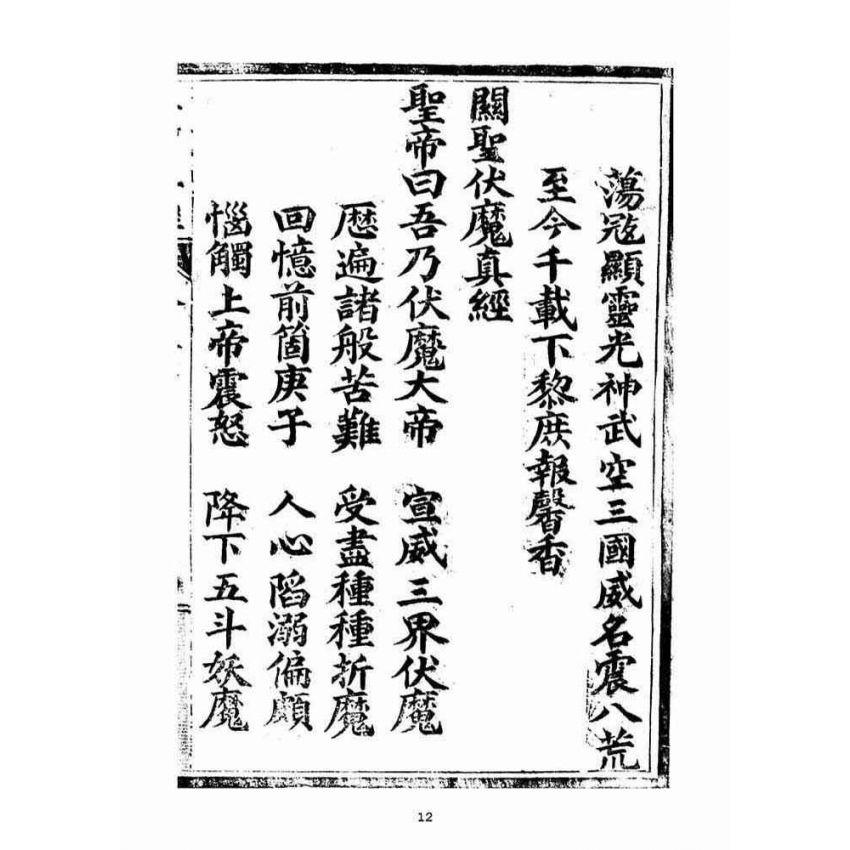 蕩寇顯靈光神武空三國威名震八荒
至今千載下黎庶報馨香
關聖伏魔真經
聖帝曰吾乃伏魔大帝 宣威三界伏魔
歷遍諸般苦難 受盡種種折魔
回憶前箇庚子 人心陷溺偏頗
惱觸上帝震怒 降下五斗妖魔
12